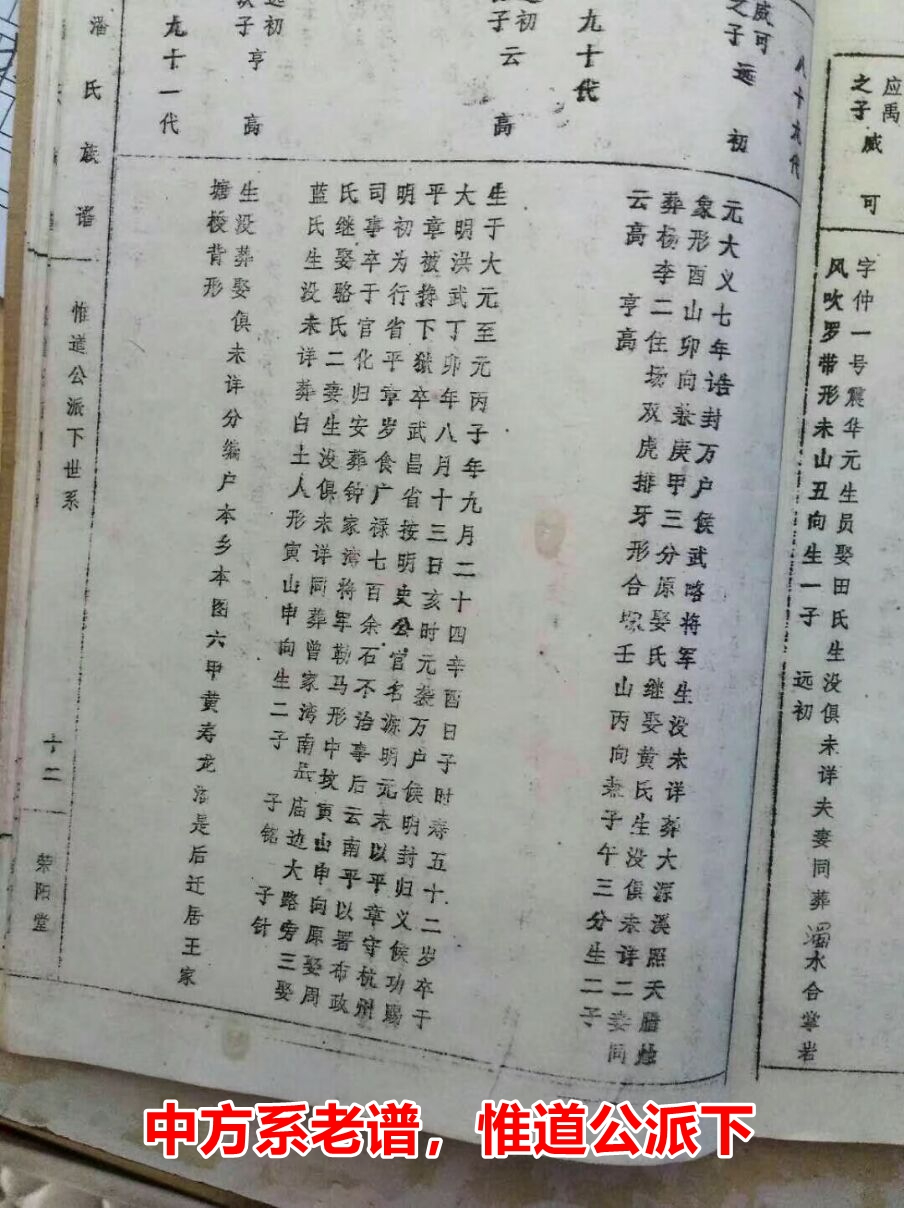 应禹
之子 威 可
字仲一号震华元生员娶田氏生没俱未详夫妻同葬 水合掌岩
风吹罗带形未山丑向生一子 远初
八十九代
威可
之子 远 初
元大义七年诰封万户侯武略将军生没未详葬大源溪照天腊烛
象形酉山卯向兼庚甲三分原娶氏继娶黄氏生没俱未详二妻同
葬杨李二住场双虎排牙形合塚壬山丙向兼子午三分生二子
云高 亨高
九十代
远初
子 云 高
生于大元至元丙子年九月二十四辛酉日子时寿五十二岁卒于
大明洪武丁卯年八月十三日亥时元袭万户侯明封归义候功赐
平章被 下狱卒武昌省按明史公官名源明元末以平章守杭州
明初为行省平章岁食广禄七百余石不治事后云南平以署布政
司事卒于官化归安葬钟家湾将军勒马形中坟寅山申向原娶周
氏继娶骆氏二妻生没俱未详同葬曾家湾南 庙边大路旁三娶
蓝氏生没未详葬白土人形寅山申向生二子 子铭 子针
九十一代
远初
次子 亨 高
生没葬娶俱未详分编户本乡本图六甲黄寿龙 是后迁居王家
塘梭背形
潘氏族谱
惟道公派下世系
十二
荥阳堂
中方系老谱，惟道公派下